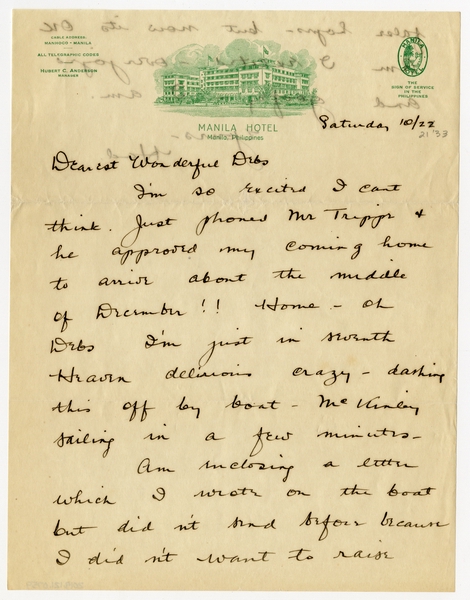 CABLE ADDRESS:
MANHOCO - MANILA
ALL TELEGRAPHIC CODES
HUBERT C. ANDERSON
MANAGER
MANILA HOTEL
Manila, Philippines
MANILA HOTEL
THE
SIGN OF SERVICE
IN THE
PHILIPPINES
Saturday 10/22
21 '33
Dearest Wonderful Debs
I'm so excited I cant
think. Just phoned Mr Trippe &
he approved my coming home
to arrive about the middle
of December!! Home - oh
Debs I'm just in seventh
Heaven delirious crazy - dashing
this off by boat - McKinley
sailing in a few minutes -
Am inclosing a letter
which I wrote on the boat
but did n't send before because
I did n't want to raise